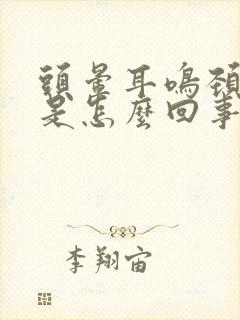 頭暈耳鳴頸
是怎麼回事
李翔宙